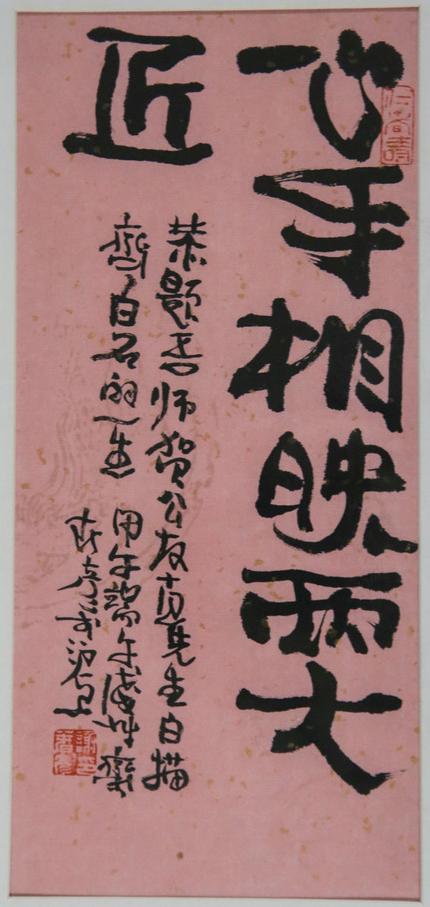 心手相映两大
匠
恭题吾师贺公友直先生白描
齊白石的一生 甲午端午浅草齋
春彦